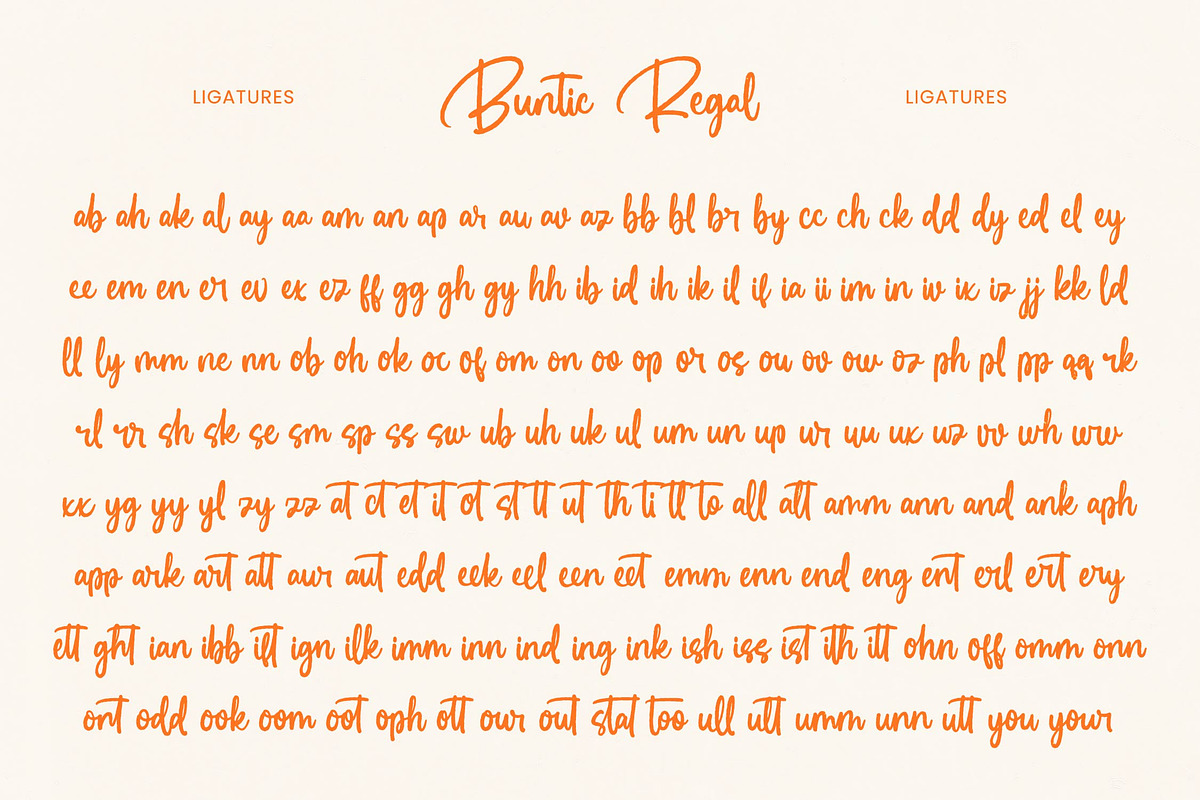 LIGATURES Buntic Regal LIGATURES
ab ah ak al ay aa am an ap ar au av az bb bl br by cc ch ck dd dy ed el ey
ee em en er ev ex ez ff gg gh gy hh ib id ih ik il if ia ii im in iv ix iz jj kk ld
ll ly mm ne nn ob oh ok oc of om on oo op or os ou ov ow oz ph pl pp qq rk
rl rr sh sk se sm sp ss sw ub uh uk ul um un up ur uu ux uz vv wh ww
xx yg yy yl zy zz at ct et it ot st tt ut th ti tl to all alt amm ann and ank aph
app ark art att aur aut edd eek eel een eet emm enn end eng ent erl ert ery
ett ght ian ibb ift ign ilk imm inn ind ing ink ish iss ist ith itt ohn off omm onn
ont odd ook oom oot oph ott our out stat too ull ult umm unn utt you your